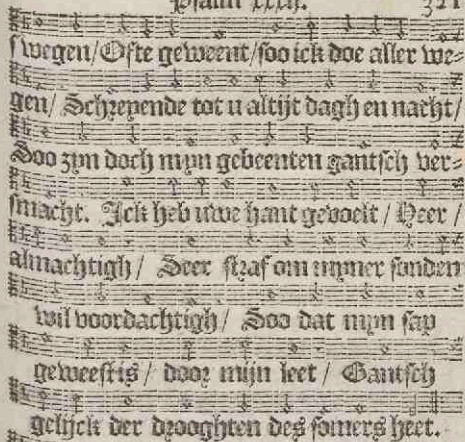 Psalm xxxij. 321
swegen/Ofte geweent/soo ick doe aller we-
gen/ Schreyende tot u altijt dagh en nacht/
Soo zijn doch mijn gebeenten gantsch ver-
smacht. Ick heb uwe hant gevoelt / Heer /
almachtigh / Seer straf om mijner sonden
wil voordachtigh / Soo dat mijn sap
geweest is / door mijn leet / Gantsch
gelijck der drooghten des somers heet.